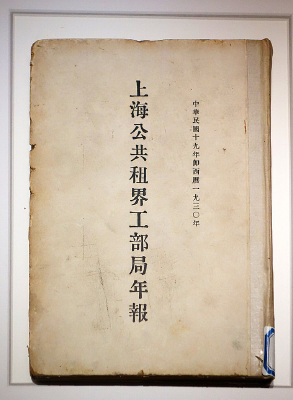 中華民國十九年卽西曆一九三〇年
上海公共租界工部局年報